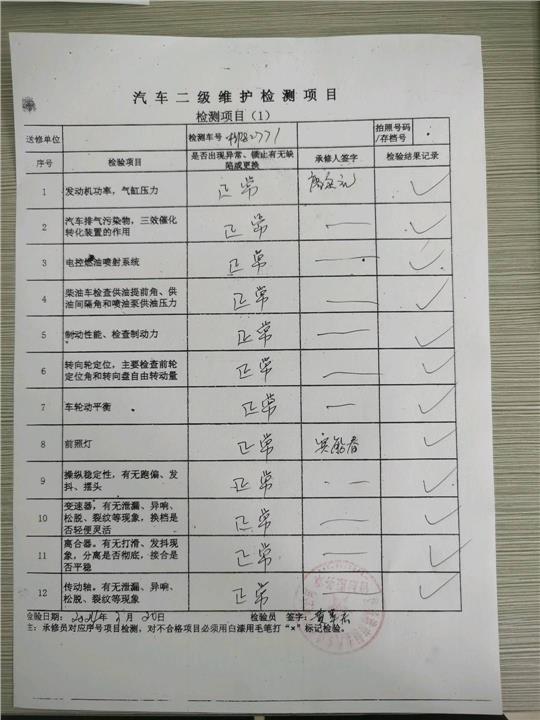 汽车二级维护检测项目
检测项目（1）
送修单位 检测车号 拍照号码/存档号
序号 检验项目 是否出现异常、锁止有无缺陷或更换 承修人签字 检验结果记录
1 发动机功率，气缸压力 正常 ✓
2 汽车排气污染物，三效催化转化装置的作用 正常 — ✓
3 电控燃油喷射系统 正常 — ✓
4 柴油车检查供油提前角、供油间隔角和喷油泵供油压力 正常 — ✓
5 制动性能、检查制动力 正常 — ✓
6 转向轮定位，主要检查前轮定位角和转向盘自由转动量 正常 — ✓
7 车轮动平衡 正常 — ✓
8 前照灯 正常 ✓
9 操纵稳定性，有无跑偏、发抖、摆头 正常 — ✓
10 变速器，有无泄漏、异响、松脱、裂纹等现象，换档是否轻便灵活 正常 — ✓
11 离合器。有无打滑、发抖现象，分离是否彻底，接合是否平稳 正常 — ✓
12 传动轴。有无泄漏、异响、松脱、裂纹等现象 正常 — ✓
检验日期： 年 月 20日 检验员 签字：
注：承修员对应序号项目检测，对不合格项目必须用白漆用毛笔打“×”标记检验。